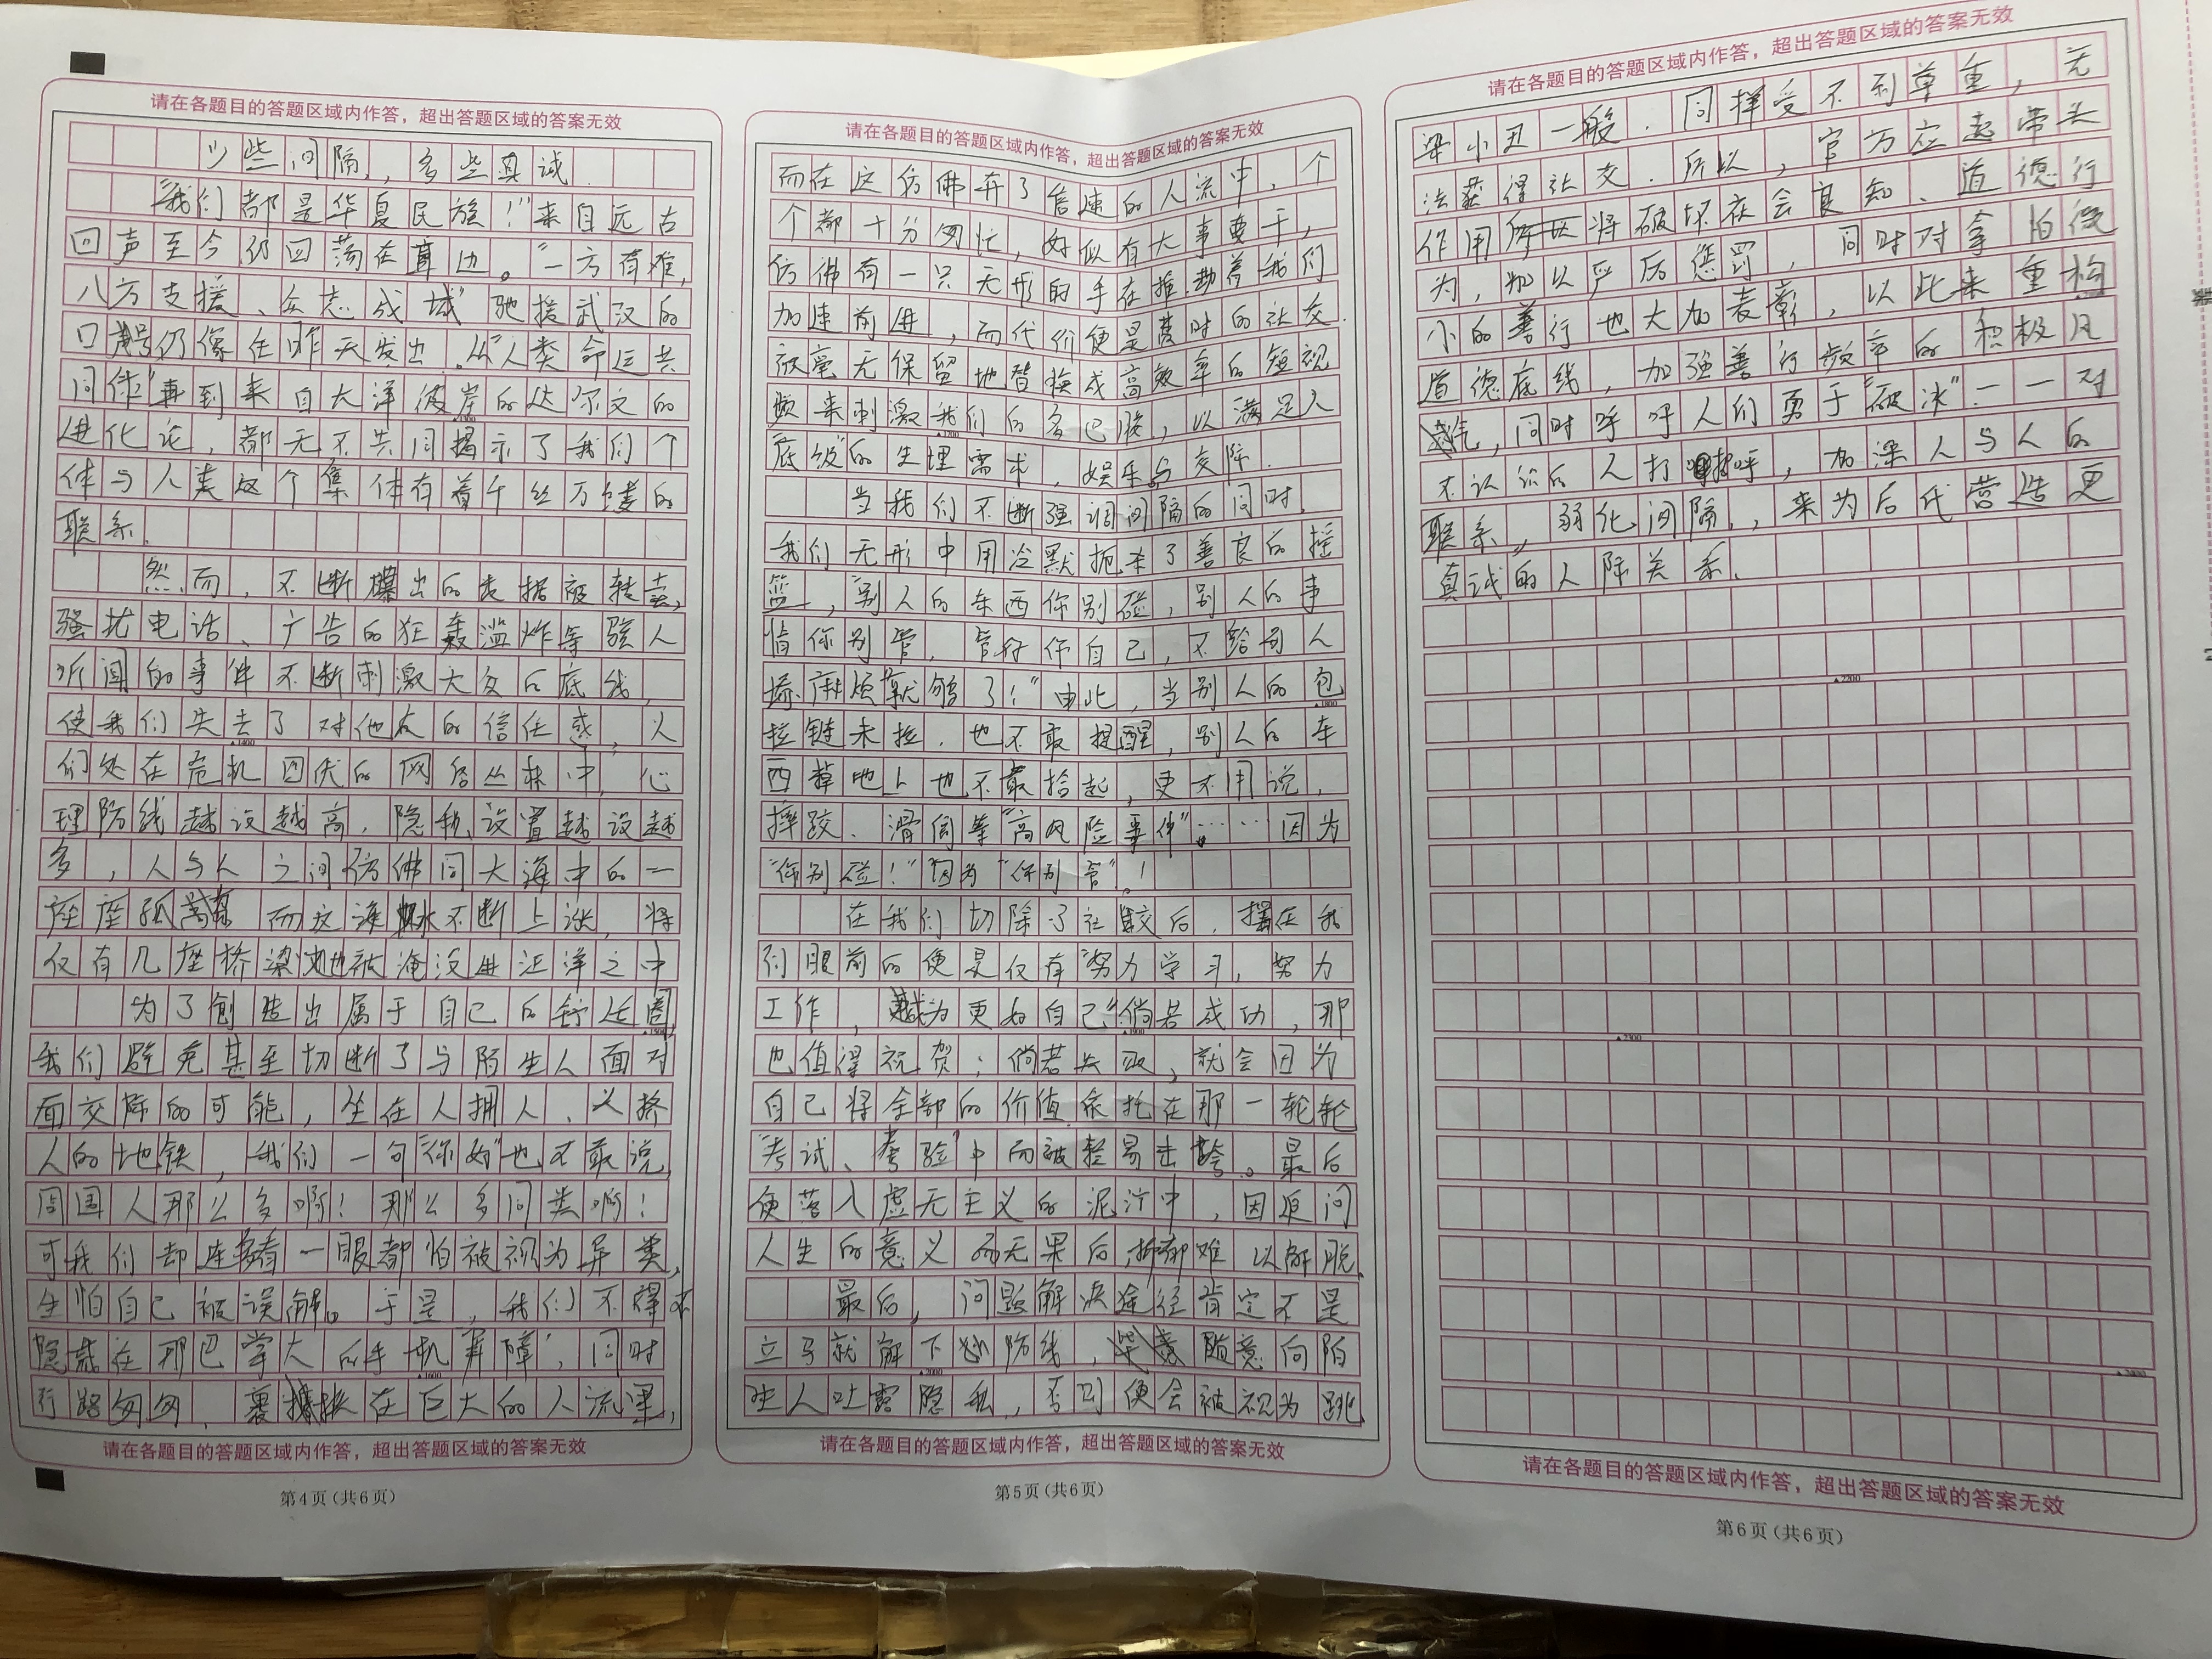 请在各题目的答题区域内作答，超出答题区域的答案无效
少些间隔，多些真诚
“我们都是华夏民族！”来自远古
回声至今仍回荡在耳边。“一方有难，
八方支援、众志成城”驰援武汉的
口号仍像在昨天发出。从“人类命运共
同体”再到来自大洋彼岸的达尔文的
进化论，都无不共同揭示了我们个
体与人类这个集体有着千丝万缕的
联系.
然而，不断爆出的数据被转卖，
骚扰电话、广告的狂轰滥炸等骇人
听闻的事件不断刺激大众的底线，
使我们失去了对他人的信任感，人
们处在危机四伏的网络丛林中，心
理防线越设越高，隐私设置越设越
多，人与人之间仿佛同大海中的一
座座孤岛 而这海水不断上涨，将
仅有几座桥梁也被淹没进汪洋之中
为了创造出属于自己的舒适圈，
我们避免甚至切断了与陌生人面对
面交际的可能，坐在人拥人、人挤
人的地铁，我们一句“你好”也不敢说，
周围人那么多啊！那么多同类啊！
可我们却连多看一眼都怕被视为异类，
生怕自己被误解。于是，我们不得不
隐藏在那巴掌大的手机“屏障”，同时
行路匆匆，裹挟在巨大的人流里，
请在各题目的答题区域内作答，超出答题区域的答案无效
第4页（共6页）
请在各题目的答题区域内作答，超出答题区域的答案无效
而在这仿佛弃了倍速的人流中，个
个都十分匆忙，好似有大事要干，
仿佛有一只无形的手在推动着我们
加速前进，而代价便是费时的社交
被毫无保留地替换成高效率的短视
频来刺激我们的多巴胺，以满足人
底级的生理需求，娱乐与交际.
当我们不断强调间隔的同时，
我们无形中用冷默扼杀了善良的摇
篮，“别人的东西你别碰，别人的事
情你别管，管好你自己，不给别人
添麻烦就够了！”由此，当别人的包
拉链未拉，也不敢提醒，别人的车
西草地上也不敢拾起，更不用说，
摔跤、滑倒等“高风险事件”……因为
“你别碰！”因为“你别管”！
在我们切除了社交后，摆在我
们眼前的便是仅有“努力学习，努力
工作，成为更好自己”倘若成功，那
也值得祝贺；倘若失败，就会因为
自己将全部的价值依托在那一轮轮
“考试、考验”中而被轻易击垮。最后
便落入虚无主义的泥泞中，因追问
人生的意义而无果后，抑郁难以解脱.
最后，问题解决途径肯定不是
立马就解下防线，随意向陌
生人吐露隐私，否则便会被视为跳
请在各题目的答题区域内作答，超出答题区域的答案无效
第5页（共6页）
请在各题目的答题区域内作答，超出答题区域的答案无效
梁小丑一般，同样受不到尊重，无
法获得社交. 所以，官方应起带头
作用 将破坏社会良知、道德行
为，加以严厉惩罚，同时对拿怕微
小的善行也大加表彰，以此来重构
道德底线，加强善行频率的积极风
气，同时呼吁人们勇于“破冰”——对
不认识的人打招呼，加深人与人的
联系，弱化间隔，来为后代营造更
真诚的人际关系.
请在各题目的答题区域内作答，超出答题区域的答案无效
第6页（共6页）